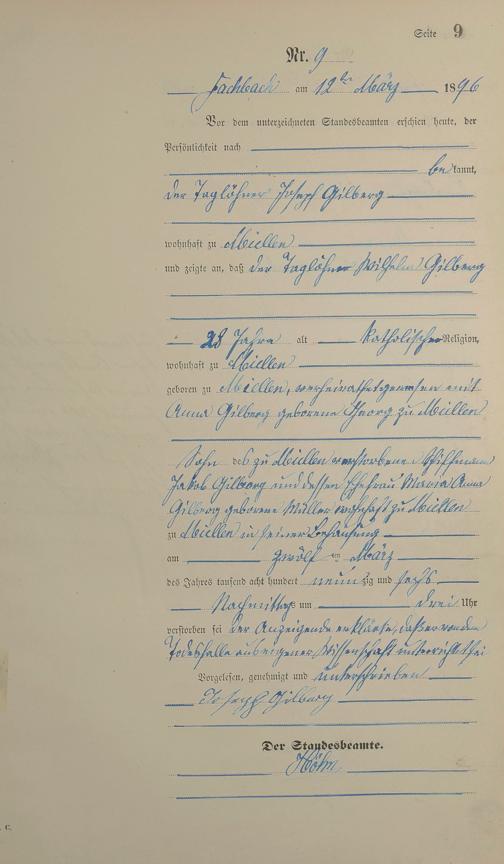 Seite 9
Nr. 9
Fachbach am 12ten März 1896
Vor dem unterzeichneten Standesbeamten erschien heute, der
Persönlichkeit nach
bekannt,
der Taglöhner Joseph Gilberg
wohnhaft zu Miellen
und zeigte an, daß der Taglöhner Wilhelm Gilberg
28 Jahre alt katholischer Religion,
wohnhaft zu Miellen
geboren zu Miellen, verheirathet gewesen mit
Anna Gilberg geborene Georg zu Miellen
Sohn des zu Miellen verstorbenen Schiffmann
Jakob Gilberg und dessen Ehefrau Maria Anna
Gilberg geborene Müller wohnhaft zu Miellen
zu Miellen in seiner Behausung
am zwölften März
des Jahres tausend acht hundert neunzig und sechs
Nachmittags um drei Uhr
verstorben sei der Anzeigende erklärte, daß er von dem
Todesfalle aus eigener Wissenschaft unterrichtet sei
Vorgelesen, genehmigt und unterschrieben
Joseph Gilberg
Der Standesbeamte.
Höhn
C.